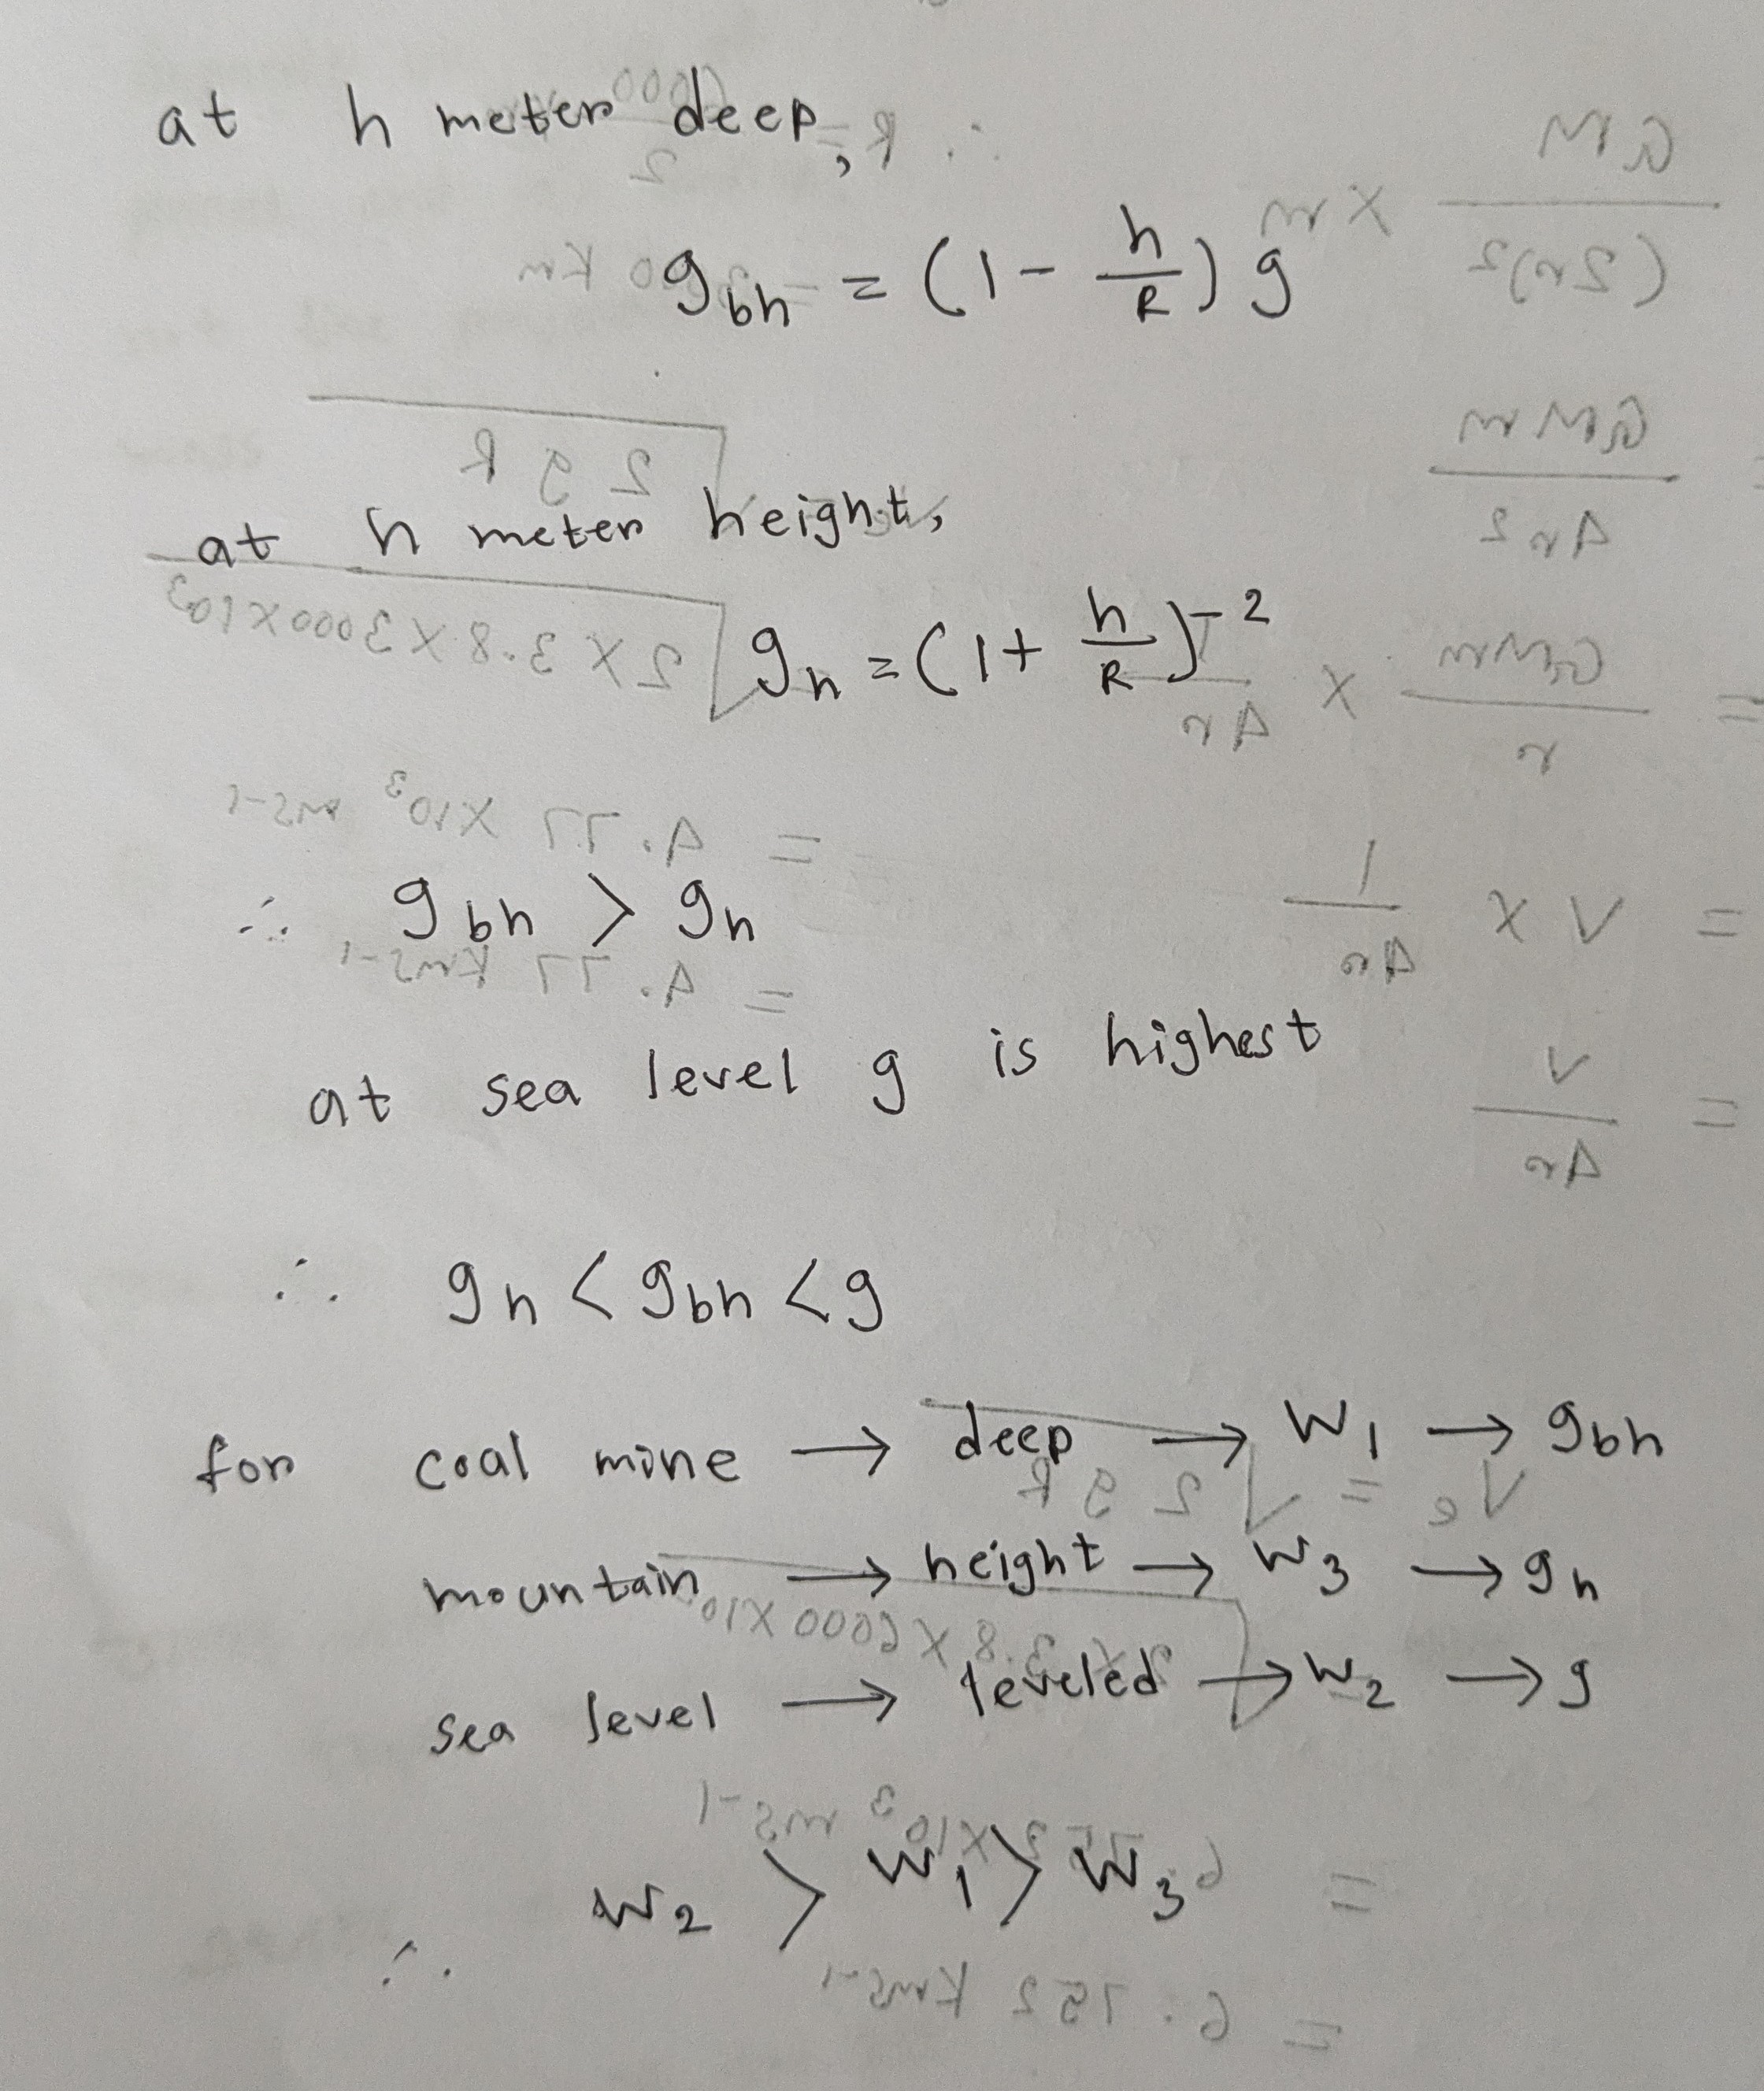 at h meter deep,
g_bh = (1 - h/R) g
at h meter height,
g_h = (1 + h/R)^-2
∴ g_bh > g_h
at sea level g is highest
∴ g_h < g_bh < g
for coal mine → deep → W_1 → g_bh
mountain → height → W_3 → g_h
sea level → leveled → W_2 → g
∴ W_2 > W_1 > W_3